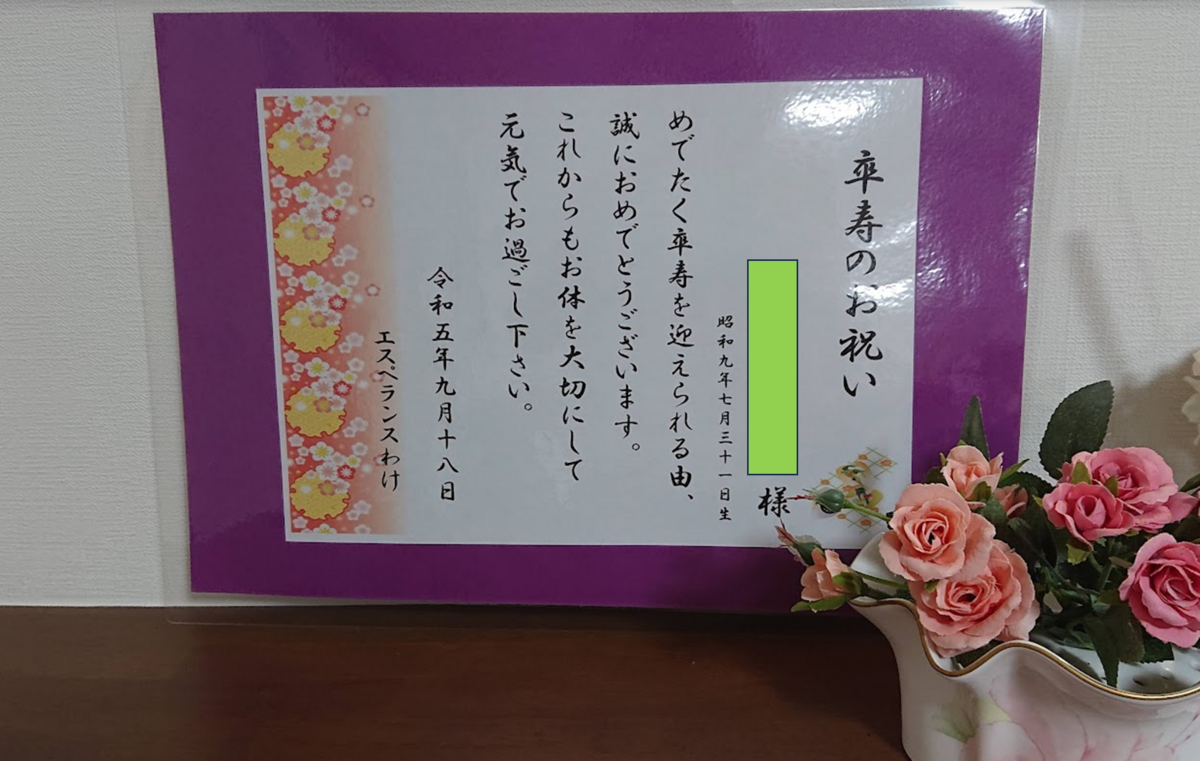 卒寿のお祝い
様
昭和九年七月三十一日生
めでたく卒寿を迎えられる由、
誠におめでとうございます。
これからもお体を大切にして
元気でお過ごし下さい。
令和五年九月十八日
エスペランスわけ